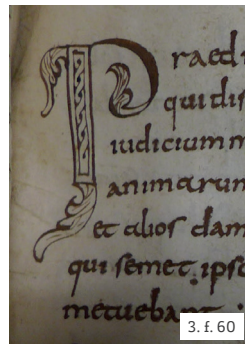 Praed
qui dis
iudicium m
animarum
et alios dam
qui semet ipso
metuebant
3. f. 60